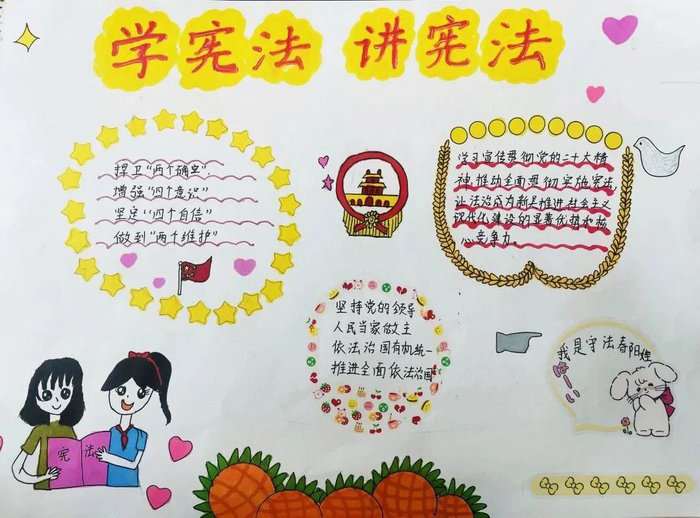 学宪法 讲宪法
捍卫“两个确立”
增强“四个意识”
坚定“四个自信”
做到“两个维护”
学习宣传贯彻党的二十大精
神,推动全面贯彻实施宪法,
让法治成为新疆推进社会主义
现代化建设的显著优势和核
心竞争力。
坚持党的领导
人民当家做主
依法治国有机统一
推进全面依法治国
我是守法春阳娃
宪法